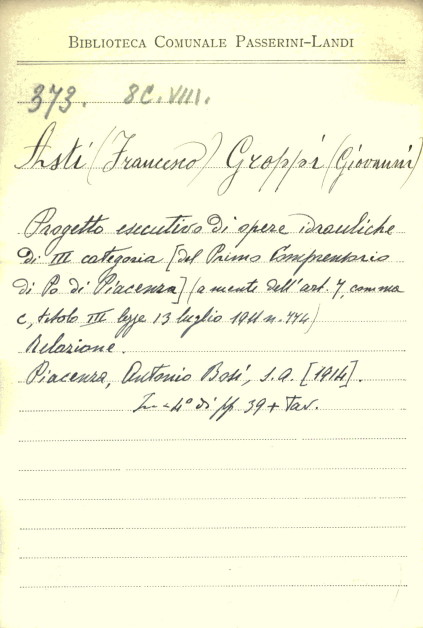 BIBLIOTECA COMUNALE PASSERINI-LANDI
373. 8C.VIII.
Asti (Francesco) Groppi (Giovanni)
Progetto esecutivo di opere idrauliche
di III categoria [del Primo Comprensorio
di Po di Piacenza] (a mente dell'art. 7, comma
c, titolo III legge 13 luglio 1911 n. 774)
Relazione.
Piacenza, Antonio Bosi, s.a. [1914].
In-4° di pp. 39 + Tav.